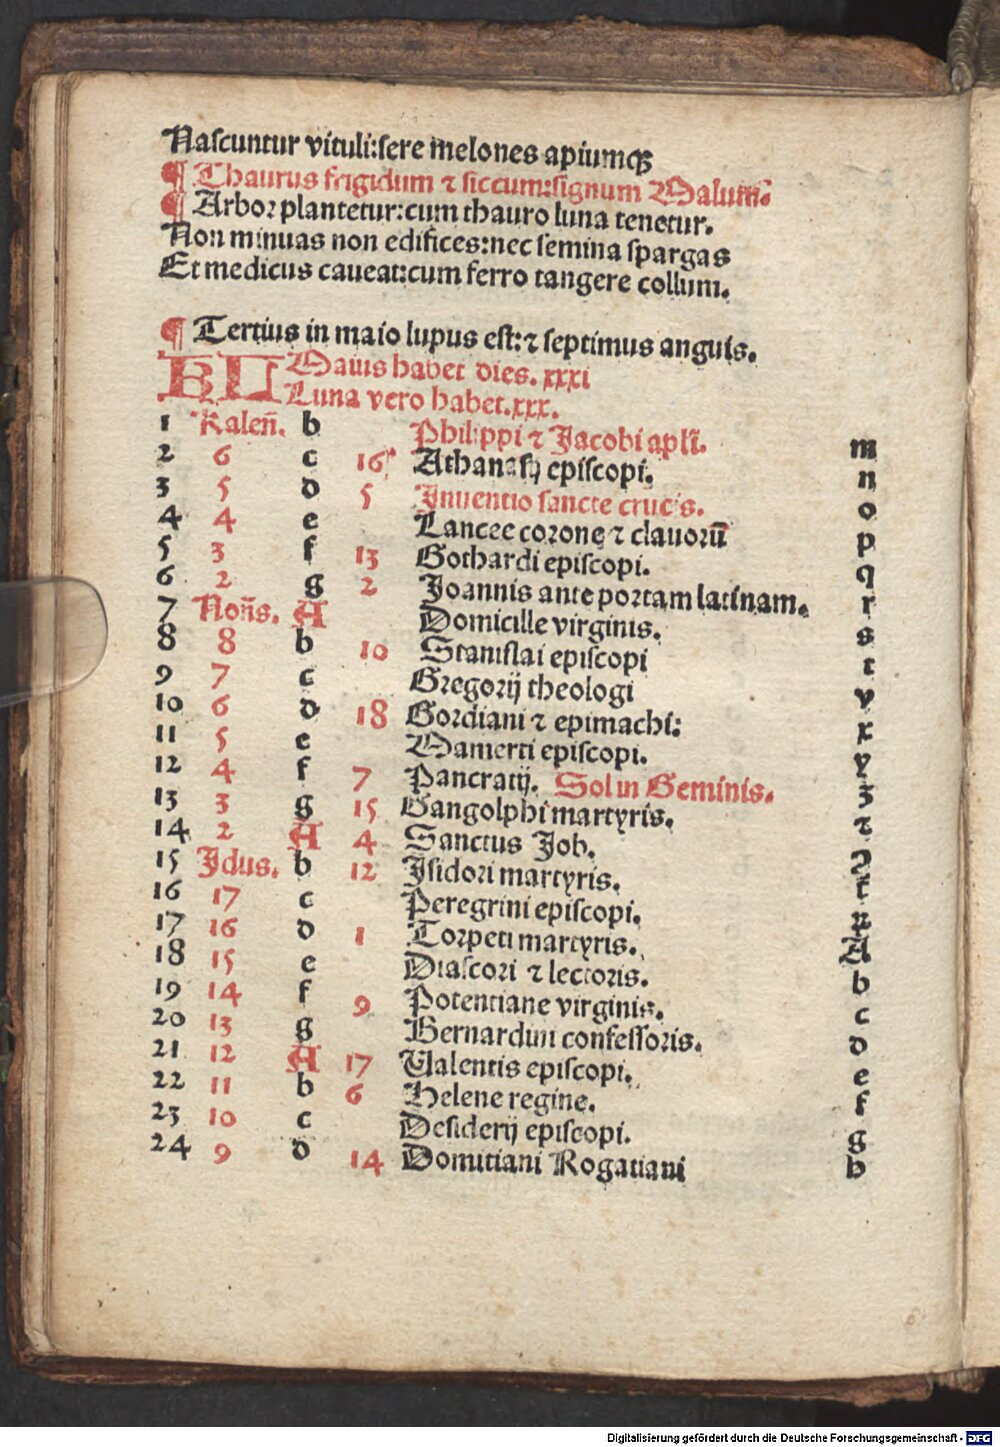 Naſcuntur vituli:ſere melones apiumqꝫ
¶ Thaurus frigidum ⁊ ſiccum:ſignum Malum.
¶ Arboꝛ plantetur:cum thauro luna tenetur.
Non minuas non edifices:nec ſemina ſpargas
Et medicus caueat:cum ferro tangere collum.
¶ Tertius in maio lupus eſt:⁊ ſeptimus anguis.
KL Maius habet dies. xxxi
Luna vero habet.xxx.
1 Kaleñ. b Philippi ⁊ Jacobi apli̅. m
2 6 c 16 Athanaſij epiſcopi. n
3 5 d 5 Inuentio ſancte crucis. o
4 4 e Lancee coꝛone ⁊ clauoꝛū p
5 3 f 13 Gothardi epiſcopi. q
6 2 g 2 Joannis ante poꝛtam latinam. r
7 Noñs. A Domicille virginis. s
8 8 b 10 Staniſlai epiſcopi t
9 7 c Gregoꝛij theologi v
10 6 d 18 Goꝛdiani ⁊ epimachi: x
11 5 e Mamerti epiſcopi. y
12 4 f 7 Pancratij. Sol in Geminis. z
13 3 g 15 Gangolphi martyris. ⁊
14 2 A 4 Sanctus Job. ꝯ
15 Idus. b 12 Iſidoꝛi martyris.
16 17 c Peregrini epiſcopi.
17 16 d 1 Toꝛpeti martyris. A
18 15 e Diaſcoꝛi ⁊ lectoꝛis. b
19 14 f 9 Potentiane virginis. c
20 13 g Bernardini confeſſoꝛis. d
21 12 A 17 Valentis epiſcopi. e
22 11 b 6 Helene regine. f
23 10 c Deſiderij epiſcopi. g
24 9 d 14 Domitiani Rogatiani h
Digitalisierung gefördert durch die Deutsche Forschungsgemeinschaft - DFG